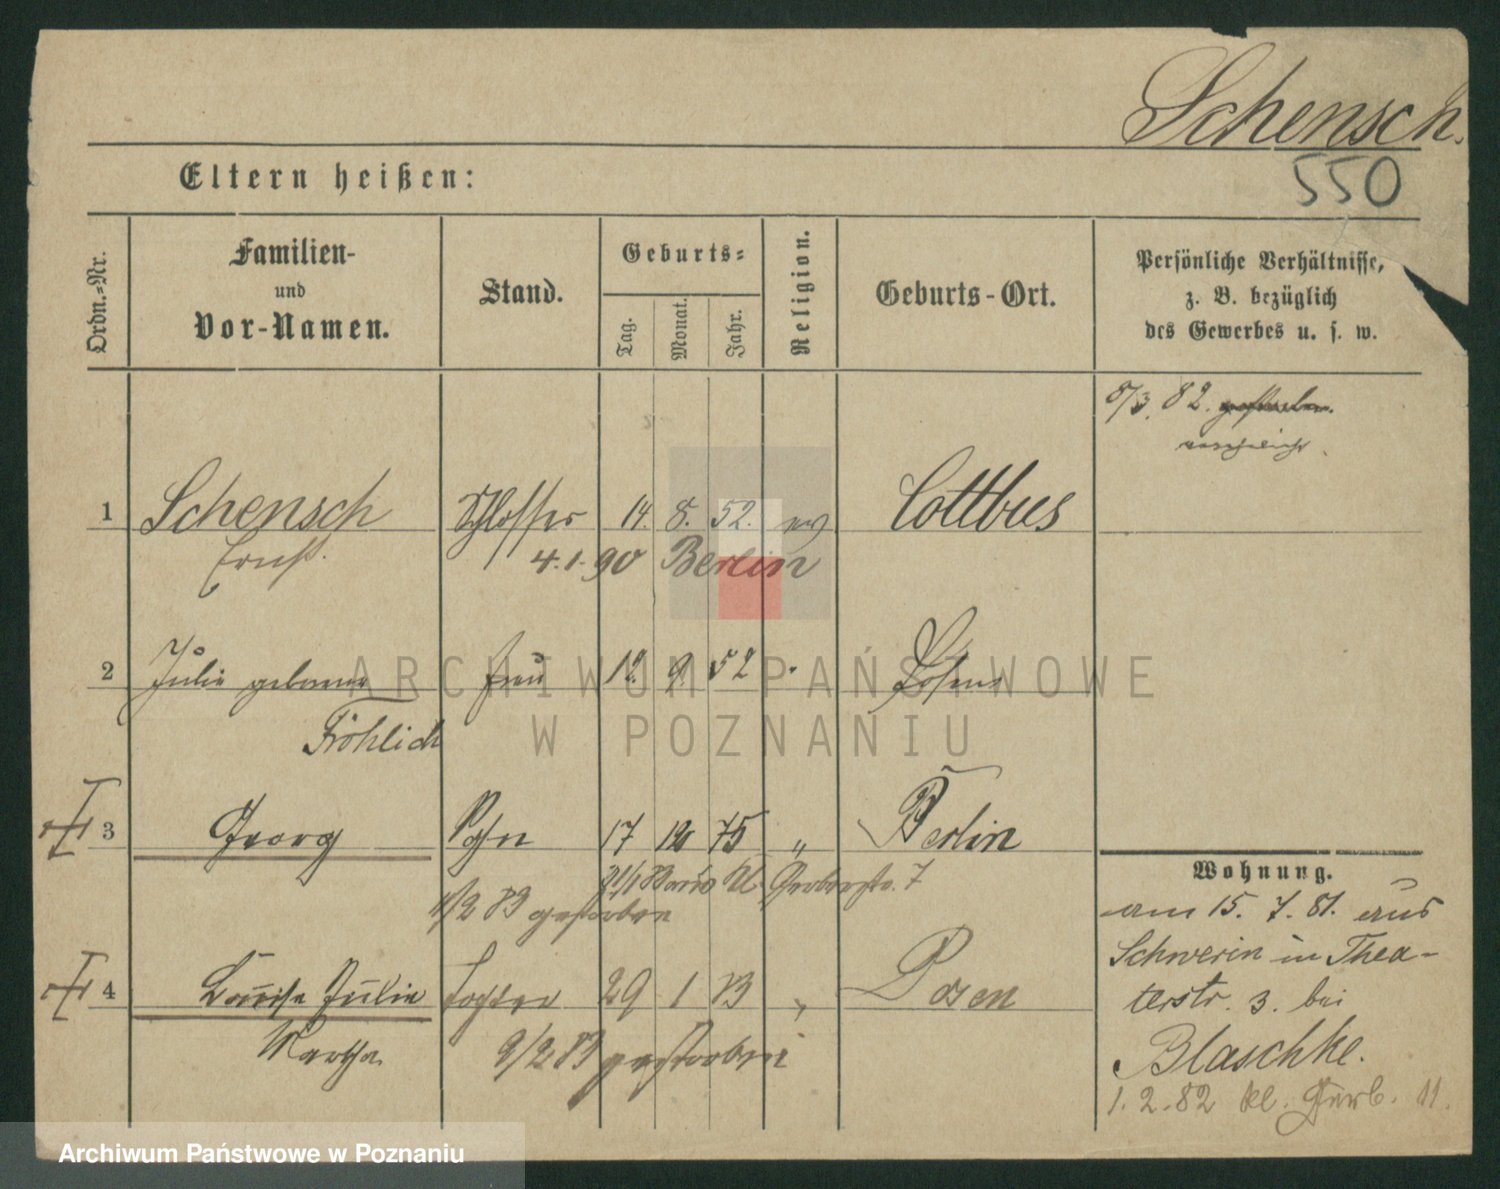 Schensch.
550
Eltern heißen:
Ordn.-Nr.
Familien-
und
Vor-Namen.
Stand.
Geburts-
Tag.
Monat.
Jahr.
Religion.
Geburts-Ort.
Persönliche Verhältnisse,
z. B. bezüglich
des Gewerbes u. s. w.
8/3. 82. gestorben.
1 Schensch Schlosser 14. 8. 52. ev Cottbus
Ernst.
4.1.90 Berlin
2 Julie geborene Frau 12. 9. 52 Posen
Fröhlich
3 Georg Sohn 17 12 75 " Berlin
Gerberstr. 7
2 83 gestorben
4 Louise Julie Tochter 29 1 83 " Posen
Martha
9/2 83 gestorben
Wohnung.
am 15. 7. 81. aus
Schwerin in Thea-
terstr. 3. bei
Blaschke.
1. 2. 82 kl. Gerb. 11.
ARCHIWUM PAŃSTWOWE
W POZNANIU
Archiwum Państwowe w Poznaniu